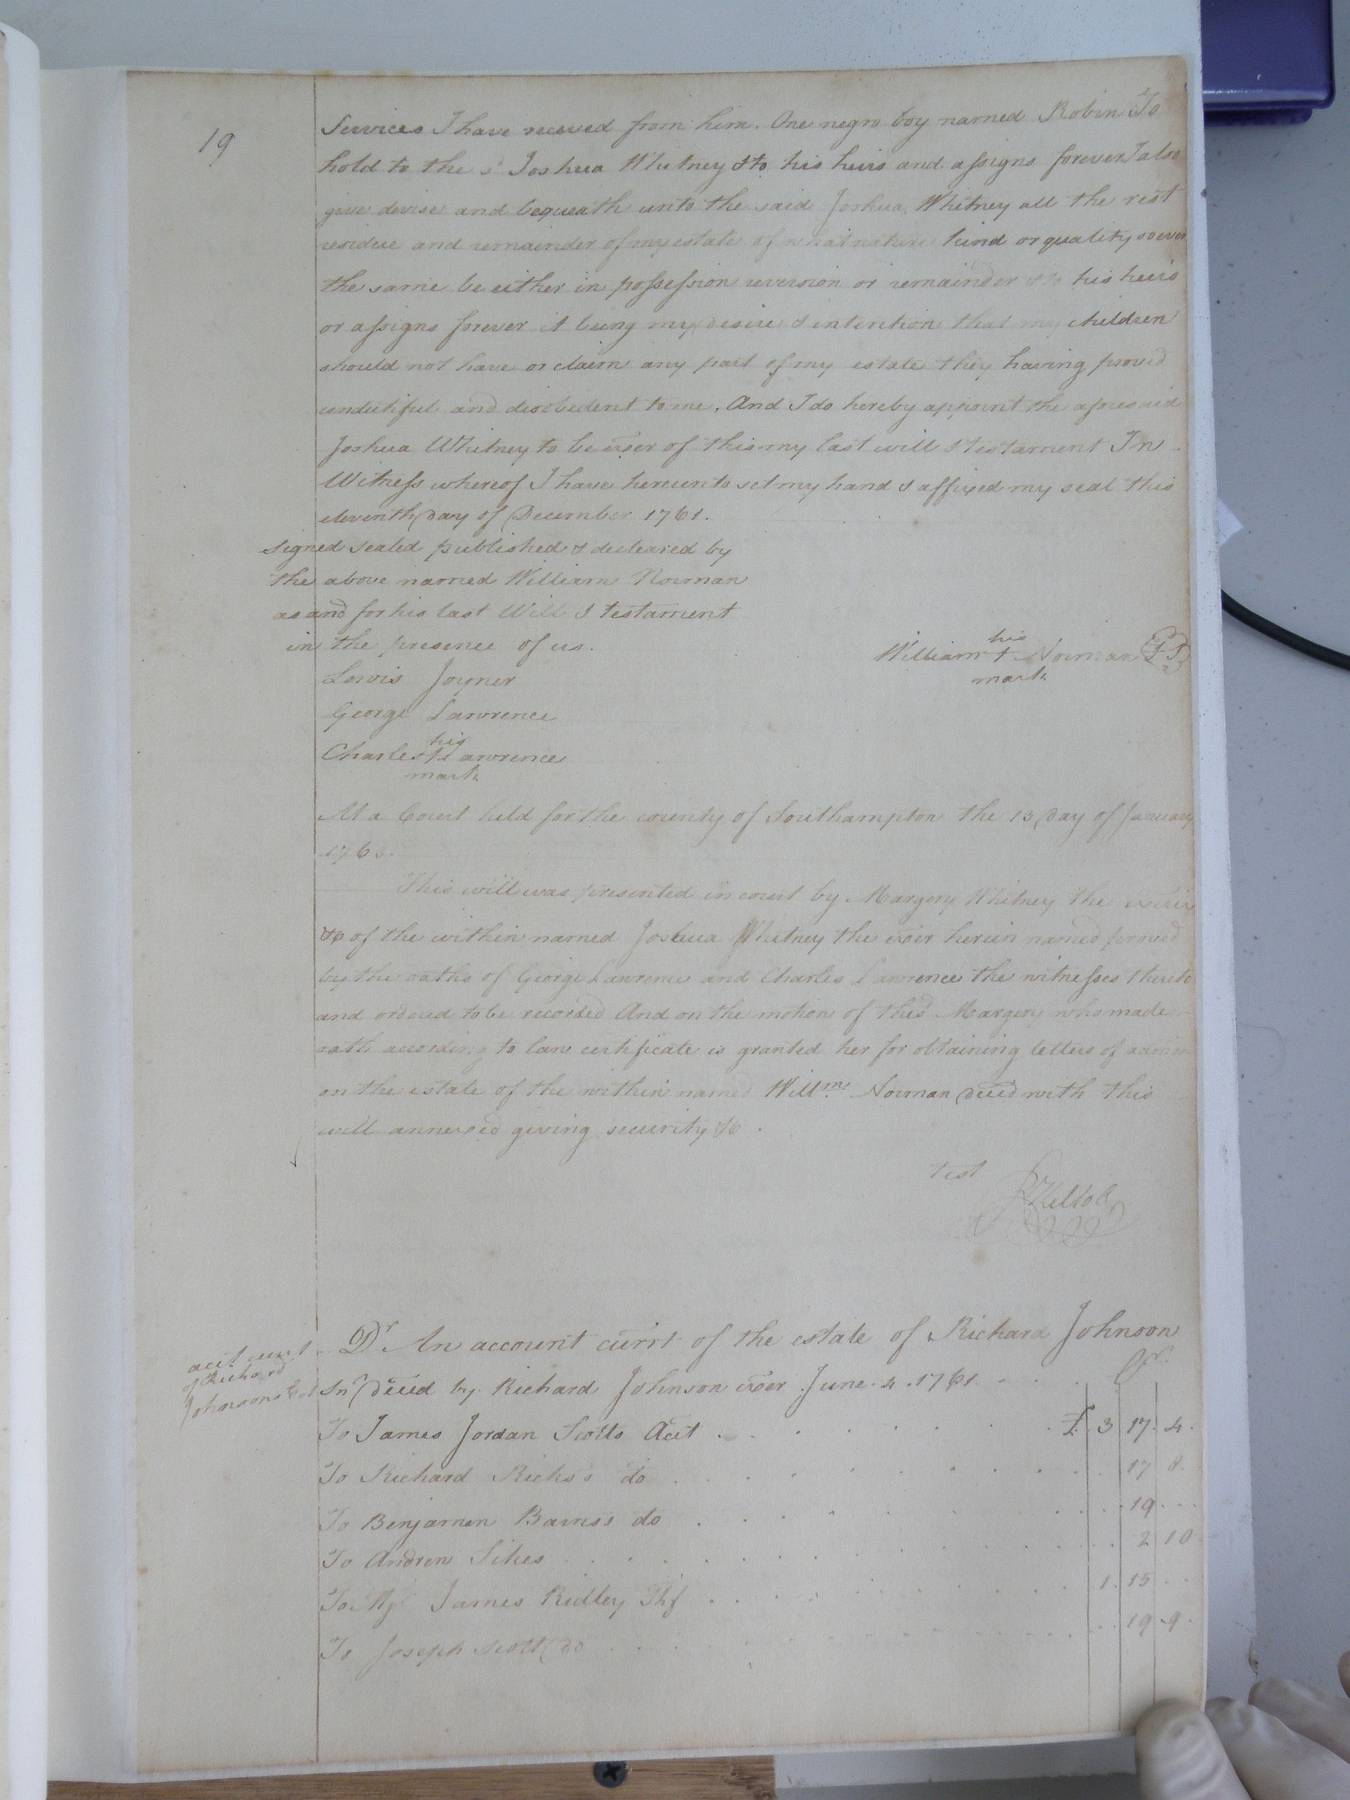 19
Services I have receved from him. One negro boy named Robin To
hold to the sd Joshua Whitney & to his heirs and assigns forever I also
give devise and bequeath unto the said Joshua Whitney all the rest
residue and remainder of my estate of what nature kind or quality soever
the same be either in possession reversion or remainder & to his heirs
or assigns forever it being my desire & intention that my children
should not have or claim any part of my estate they having proved
undutiful and disobedent to me, And I do hereby appoint the aforesaid
Joshua Whitney to be exer of this my last will & testament In
Witness whereof I have hereunto set my hand & affixed my seal this
eleventh Day of December 1761.
signed sealed published & decleared by
the above named William Norman
as and for his last Will & testament
in the presence of us.
his
William + Norman
mark
Lewis Joyner
George Lawrence
his
Charles + Lawrence
mark
At a Court held for the county of Southampton the 13 Day of January
176
This will was presented in court by Margery Whitney the
&c of the within named Joshua Whitney the exer herein named proved
by the oaths of George Lawrence and Charles Lawrence the witnesses thereto
and ordered to be recorded And on the motion of the sd Margery who made
oath according to law certificate is granted her for obtaining letters of
on the estate of the within named Willm Norman deced with this
will annexed giving security &c.
test
acct curt
of Richard
Johnsons Est
Dr An account currt of the estate of Richard Johnson
Snr deced by Richard Johnson exer June 4. 1761. Cr
To James Jordan Scotts Acct £ 3 17 4
To Richard Ricks's do 17 8
To Benjamen Barnes's do 19
To Andrew Sikes 2 10
To Mj James Ridley Shf 1 15
To Joseph Scott do 19 9